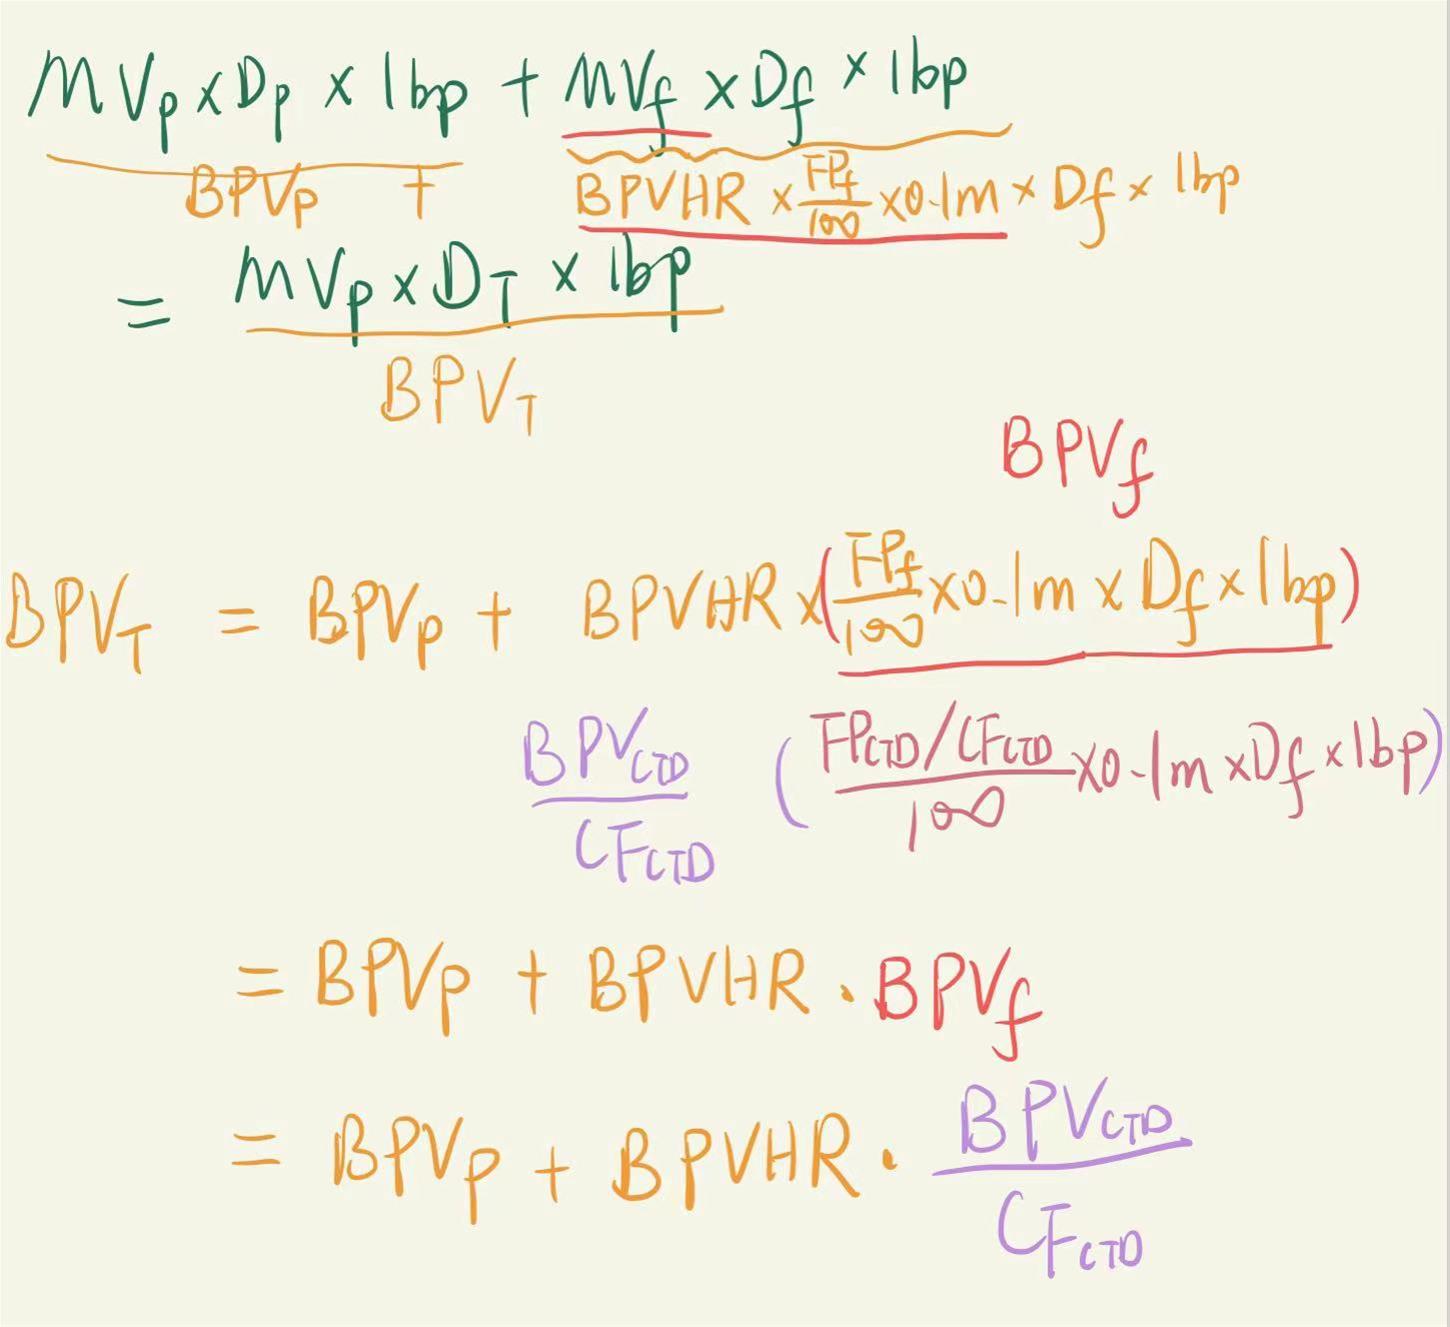 MVp × Dp × 1bp + MVf × Df × 1bp
BPVp + BPVHR × FPf/100 × 0.1m × Df × 1bp
= MVp × DT × 1bp
BPVT
BPVf
BPVT = BPVp + BPVHR × (FPf/100 × 0.1m × Df × 1bp)
BPVCTD/CFCTD (FPCTD/CFCTD/100 × 0.1m × Df × 1bp)
= BPVp + BPVHR · BPVf
= BPVp + BPVHR · BPVCTD/CFCTD